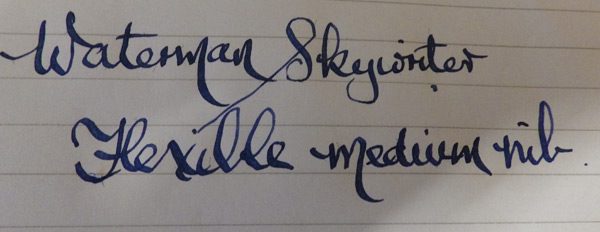 Waterman Skywriter
Flexible medium nib.